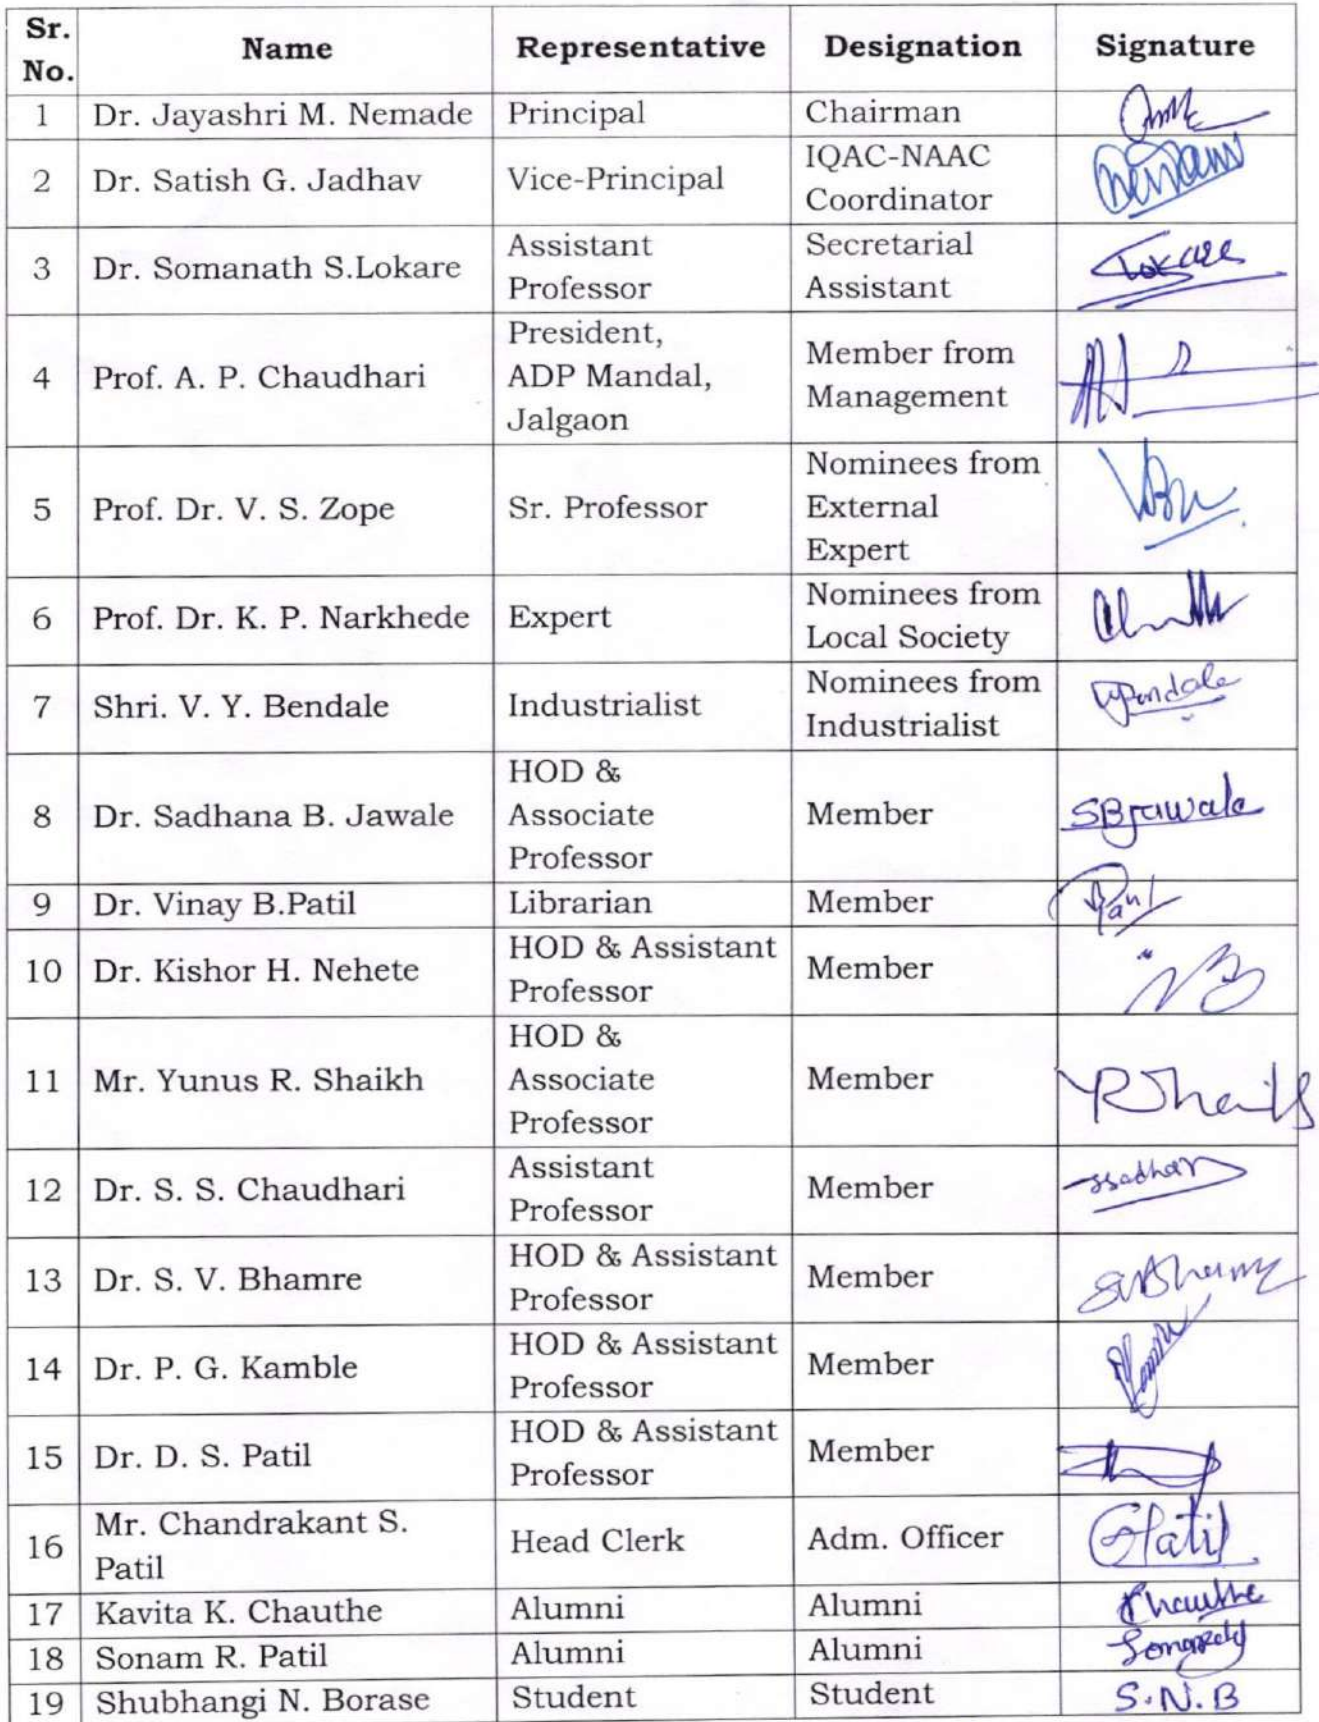 Sr. No. Name Representative Designation Signature
1 Dr. Jayashri M. Nemade Principal Chairman
2 Dr. Satish G. Jadhav Vice-Principal IQAC-NAAC Coordinator
3 Dr. Somanath S.Lokare Assistant Professor Secretarial Assistant Lokare
4 Prof. A. P. Chaudhari President, ADP Mandal, Jalgaon Member from Management
5 Prof. Dr. V. S. Zope Sr. Professor Nominees from External Expert
6 Prof. Dr. K. P. Narkhede Expert Nominees from Local Society
7 Shri. V. Y. Bendale Industrialist Nominees from Industrialist VYBendale
8 Dr. Sadhana B. Jawale HOD & Associate Professor Member SBJawale
9 Dr. Vinay B.Patil Librarian Member
10 Dr. Kishor H. Nehete HOD & Assistant Professor Member
11 Mr. Yunus R. Shaikh HOD & Associate Professor Member YRShaikh
12 Dr. S. S. Chaudhari Assistant Professor Member
13 Dr. S. V. Bhamre HOD & Assistant Professor Member SVBhamre
14 Dr. P. G. Kamble HOD & Assistant Professor Member
15 Dr. D. S. Patil HOD & Assistant Professor Member
16 Mr. Chandrakant S. Patil Head Clerk Adm. Officer CSPatil
17 Kavita K. Chauthe Alumni Alumni KChauthe
18 Sonam R. Patil Alumni Alumni
19 Shubhangi N. Borase Student Student S.N.B